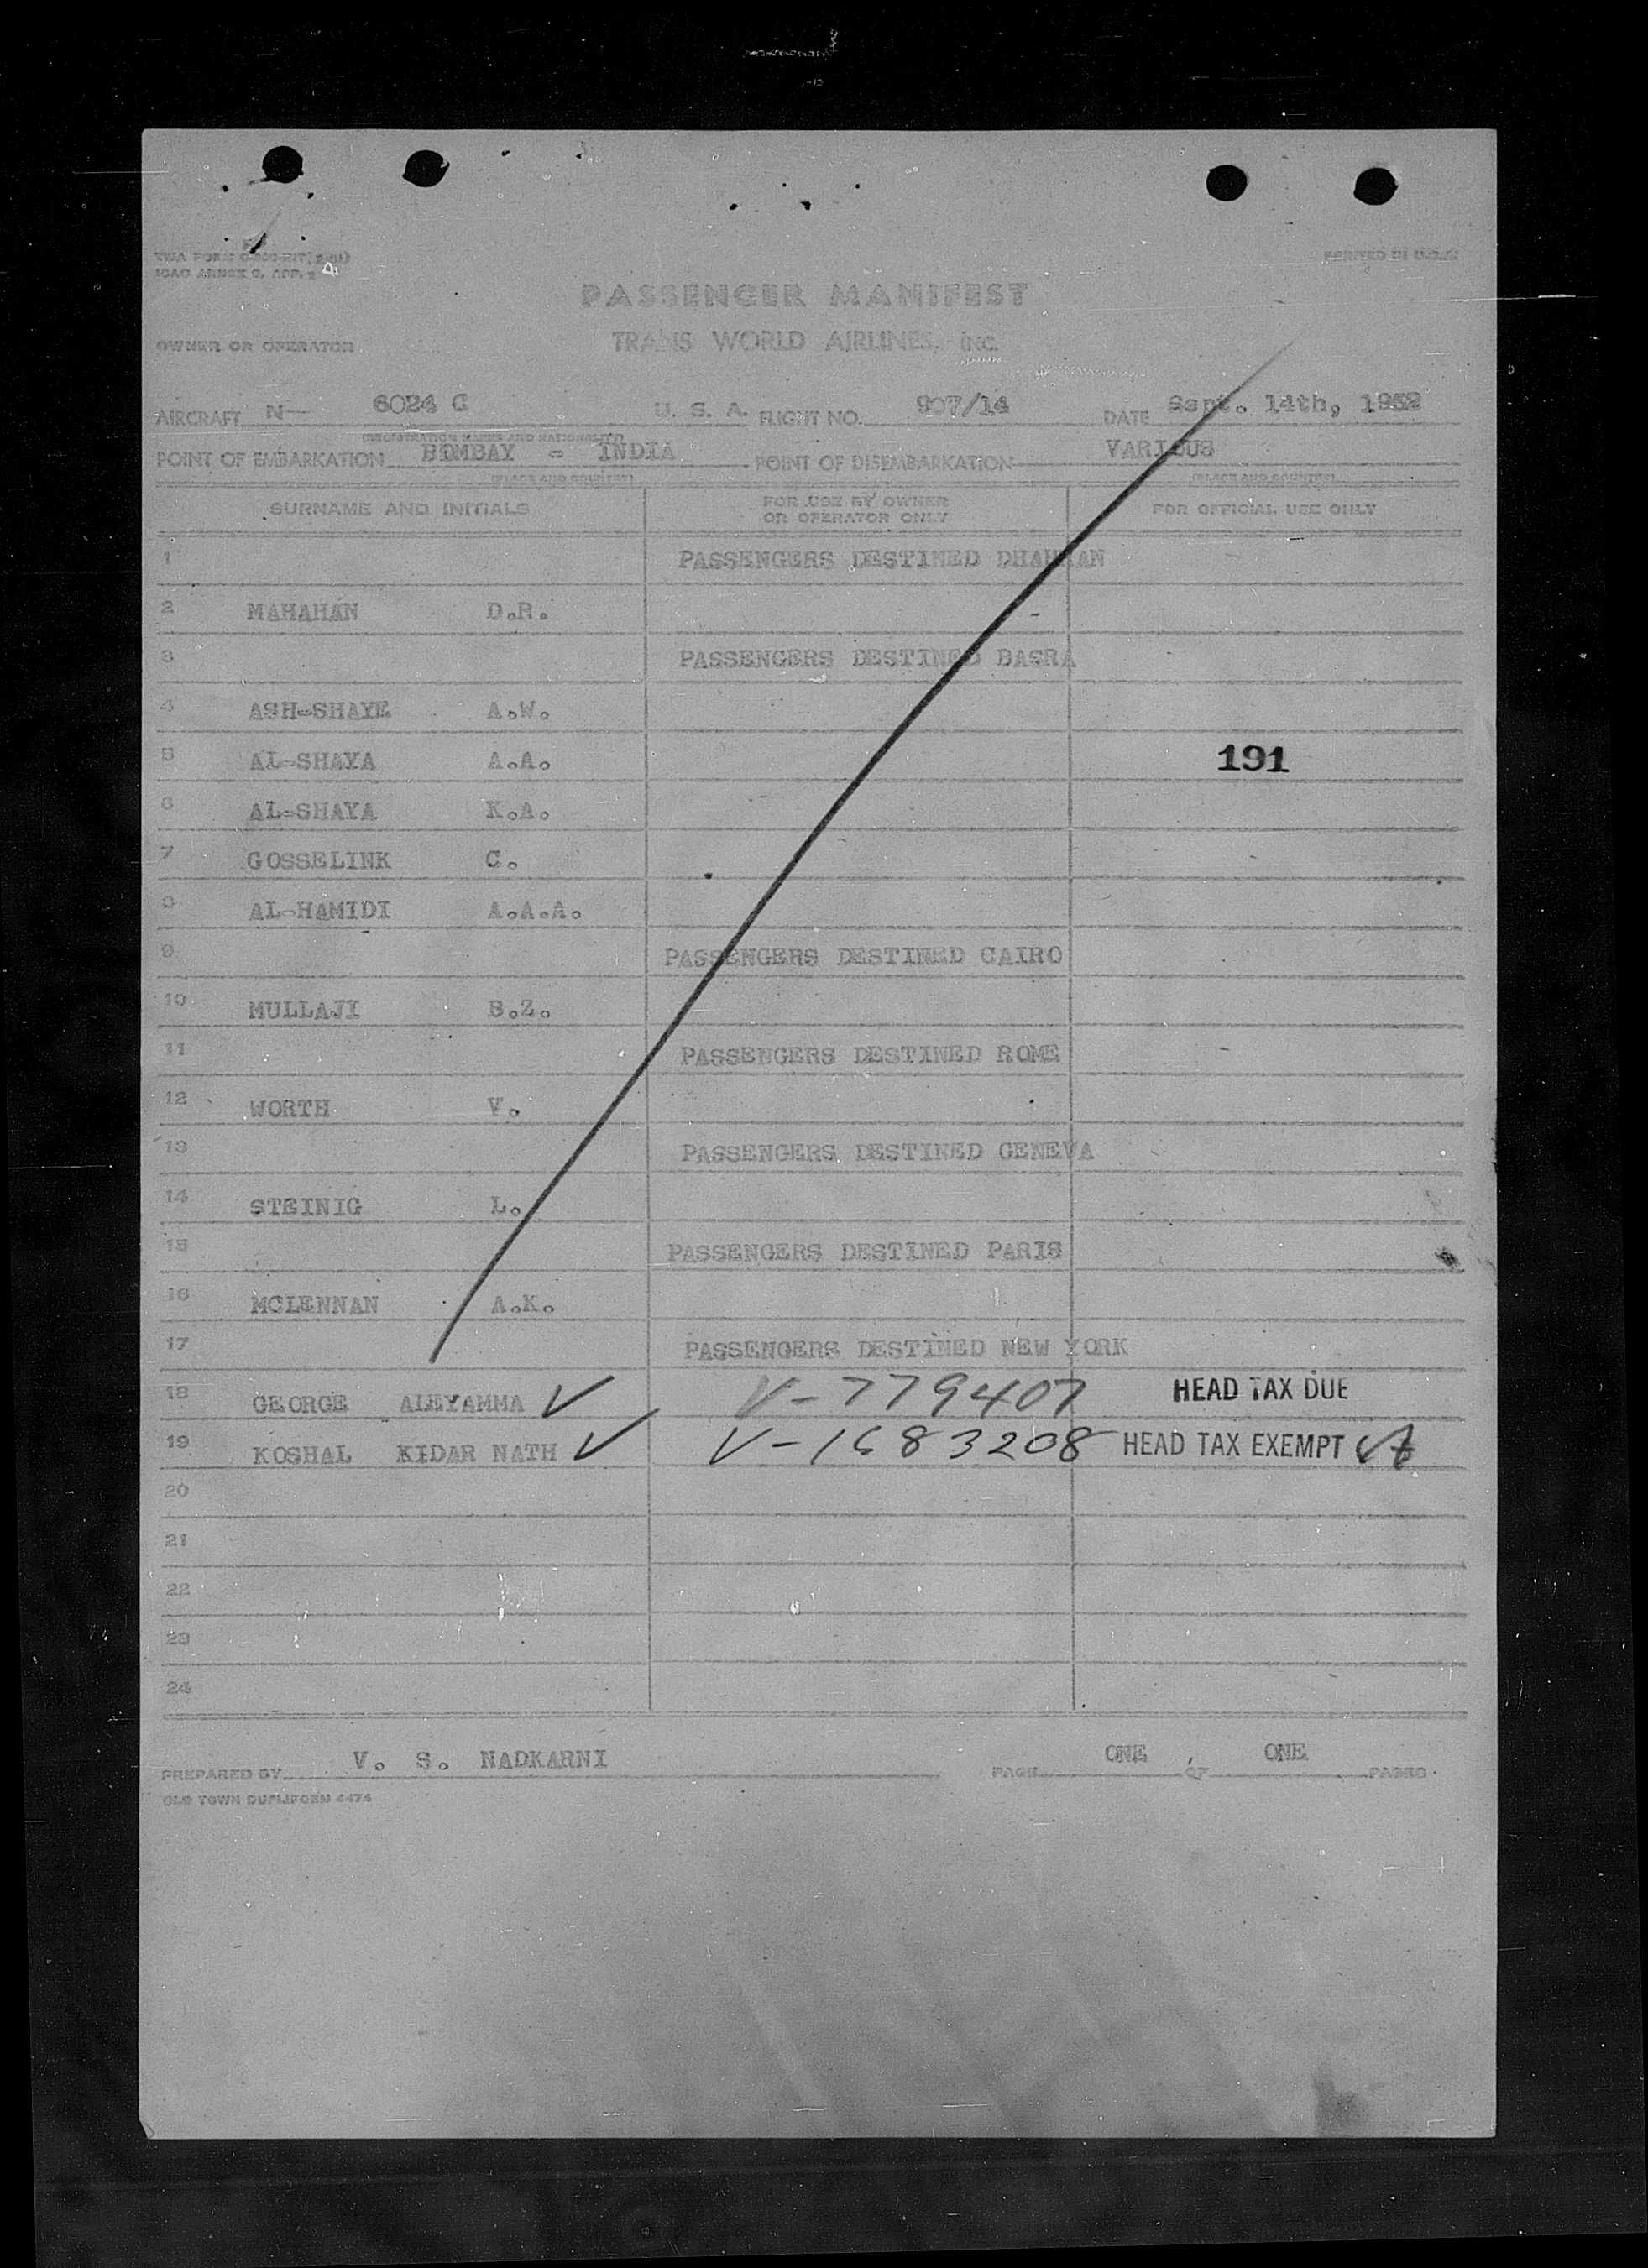 ICAO ANNEX 9, APP. 2
PRINTED IN U.S.A.
PASSENGER MANIFEST
OWNER OR OPERATOR TRANS WORLD AIRLINES, INC.
AIRCRAFT N— 6024 C U. S. A. FLIGHT NO. 907/14 DATE Sept. 14th, 1952
(REGISTRATION MARKS AND NATIONALITY)
POINT OF EMBARKATION BOMBAY - INDIA POINT OF DISEMBARKATION VARIOUS
(PLACE AND COUNTRY) (PLACE AND COUNTRY)
SURNAME AND INITIALS FOR USE BY OWNER OR OPERATOR ONLY FOR OFFICIAL USE ONLY
1 PASSENGERS DESTINED DHAHRAN
2 MAHAHAN D.R.
3 PASSENGERS DESTINED BASRA
4 ASH-SHAYE A.W.
5 AL-SHAYA A.A. 191
6 AL-SHAYA K.A.
7 GOSSELINK C.
8 AL-HAMIDI A.A.A.
9 PASSENGERS DESTINED CAIRO
10 MULLAJI B.Z.
11 PASSENGERS DESTINED ROME
12 WORTH V.
13 PASSENGERS DESTINED GENEVA
14 STEINIG L.
15 PASSENGERS DESTINED PARIS
16 MCLENNAN A.K.
17 PASSENGERS DESTINED NEW YORK
18 GEORGE ALEYAMMA V-779407 HEAD TAX DUE
19 KOSHAL KIDAR NATH V-1683208 HEAD TAX EXEMPT
20
21
22
23
24
PREPARED BY V. S. NADKARNI PAGE ONE OF ONE PAGES
OLD TOWN DUPLIFORM 4474